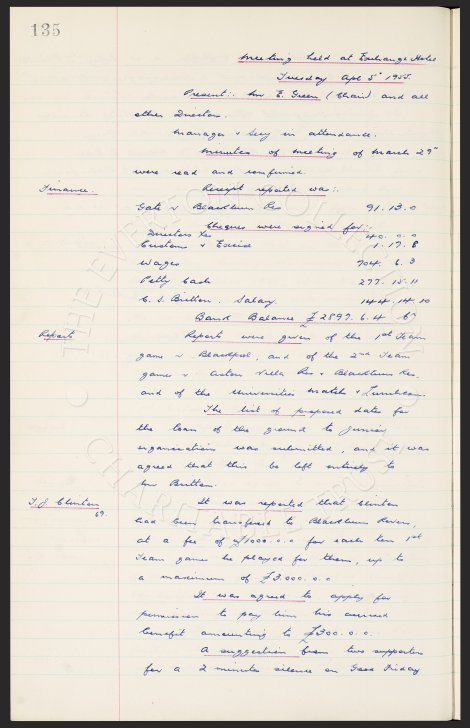 135
Meeting held at Exchange Hotel
Tuesday Apl 5" 1955.
Present:- Mr E. Green (Chair) and all
other Directors.
Manager & Secy in attendance.
Minutes of meeting of March 29"
were read and confirmed.
Finance. Receipt reported was:-
Gate v Blackburn Res 91. 13. 0
Cheques were signed for:-
Directors Exs 40. 0. 0
Customs & Excise 1. 17. 8
Wages 704. 6. 3
Petty Cash 277. 15. 11
C. S. Britton. Salary 144. 14. 10
Bank Balance £2897. 6. 4
Reports Reports were given of the 1st Team
game v Blackpool, and of the 2nd Team
games v Aston Villa Res & Blackburn Res
and of the Universities match & Luncheon.
The list of proposed dates for
the loan of the ground to Junior
organisations was submitted, and it was
agreed that this be left entirely to
Mr Britton.
T. J. Clinton It was reported that Clinton
69.
had been transferred to Blackburn Rovers,
at a fee of £1000. 0. 0 for each ten 1st
Team games he played for them, up to
a maximum of £3.000. 0. 0
It was agreed to apply for
permission to pay him his accrued
benefit amounting to £300. 0. 0.
A suggestion from two supporters
for a 2 minutes silence on Good Friday
THE EVERTON COLLECTION
CHARITABLE TRUST